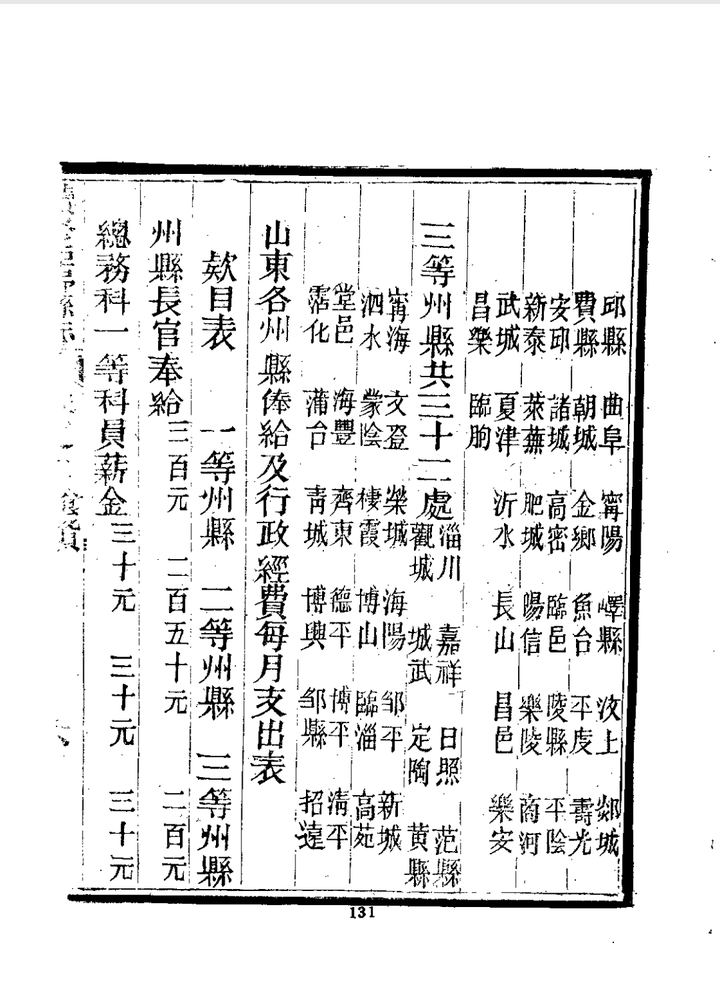 邱縣 曲阜 甯陽 嶧縣 汶上 郯城
費縣 朝城 金鄉 魚台 平度 壽光
安邱 諸城 高密 臨邑 陵縣 平陰
新泰 萊蕪 肥城 陽信 樂陵 商河
武城 夏津 沂水 長山 昌邑 樂安
昌樂 臨朐
三等州縣共三十二處 淄川 嘉祥 日照 范縣
觀城 城武 定陶 黃縣
甯海 文登 榮城 海陽 鄒平 新城
泗水 蒙陰 棲霞 博山 臨淄 高苑
堂邑 海豐 齊東 德平 博平 清平
霑化 蒲台 青城 博興 鄒縣 招遠
山東各州縣俸給及行政經費每月支出表
欵目表 一等州縣 二等州縣 三等州縣
州縣長官奉給 三百元 二百五十元 二百元
總務科一等科員薪金 三十元 三十元 三十元
131